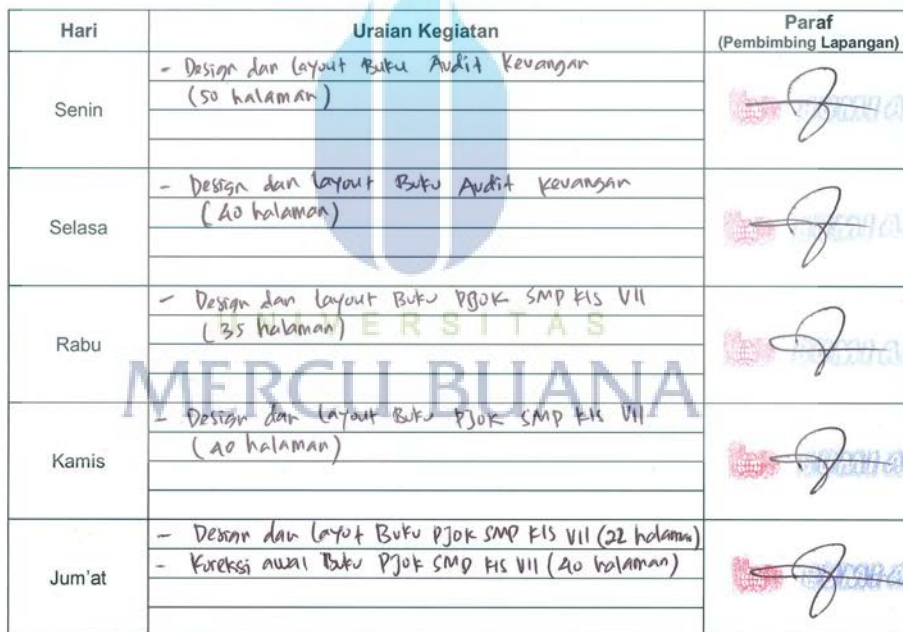 Hari Uraian Kegiatan Paraf
(Pembimbing Lapangan)
Senin
- Design dan Layout Buku Audit Keuangan
(50 halaman)
Selasa
- Design dan Layout Buku Audit Keuangan
(40 halaman)
Rabu
- Design dan Layout Buku PJOK SMP Kls VII
(35 halaman)
UNIVERSITAS
MERCU BUANA
Kamis
- Design dan Layout Buku PJOK SMP Kls VII
(40 halaman)
Jum'at
- Design dan Layout Buku PJOK SMP Kls VII (22 halaman)
- Koreksi awal Buku PJOK SMP Kls VII (40 halaman)